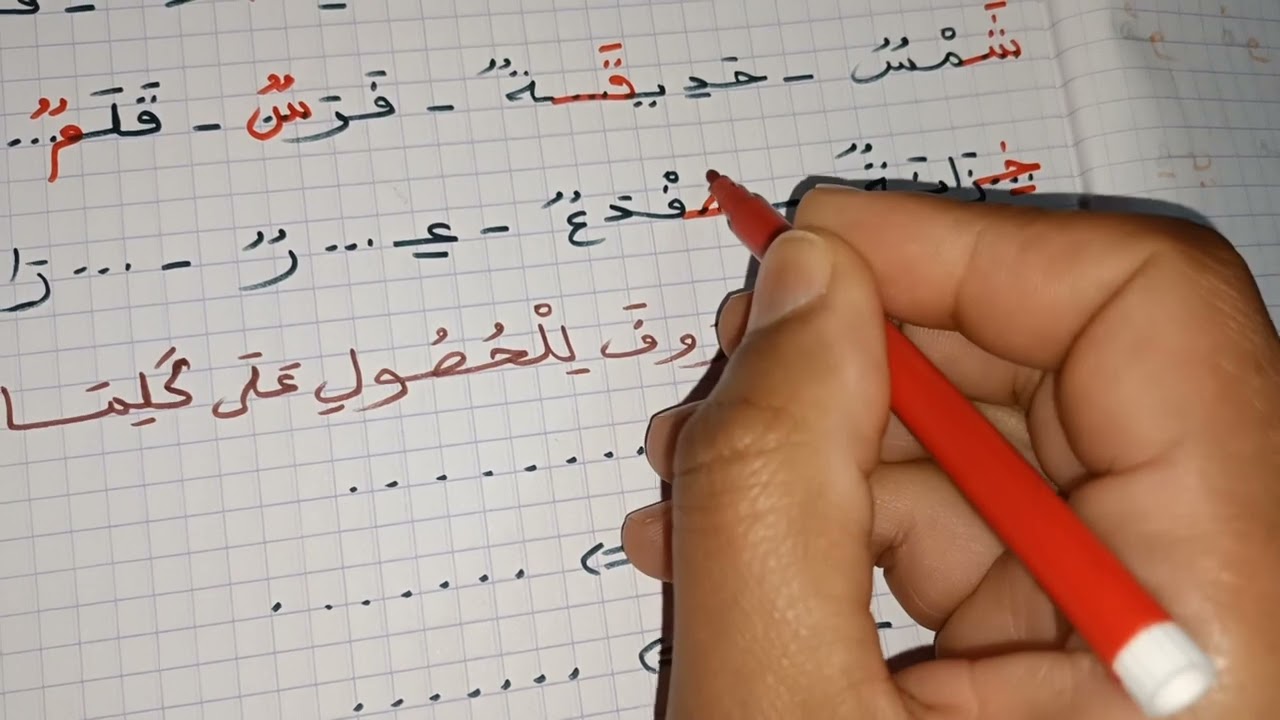 شَمْسٌ - حَدِيقَةٌ - فَرَسٌ - قَلَمٌ ...
خِزَانَةٌ - ضِفْدَعٌ - عِـ ... رٌ - ... زَا
رُوفَ لِلْحُصُولِ عَلَى كَلِمَا
. . . . . . . .
. . . . . . .
. . . . . . .